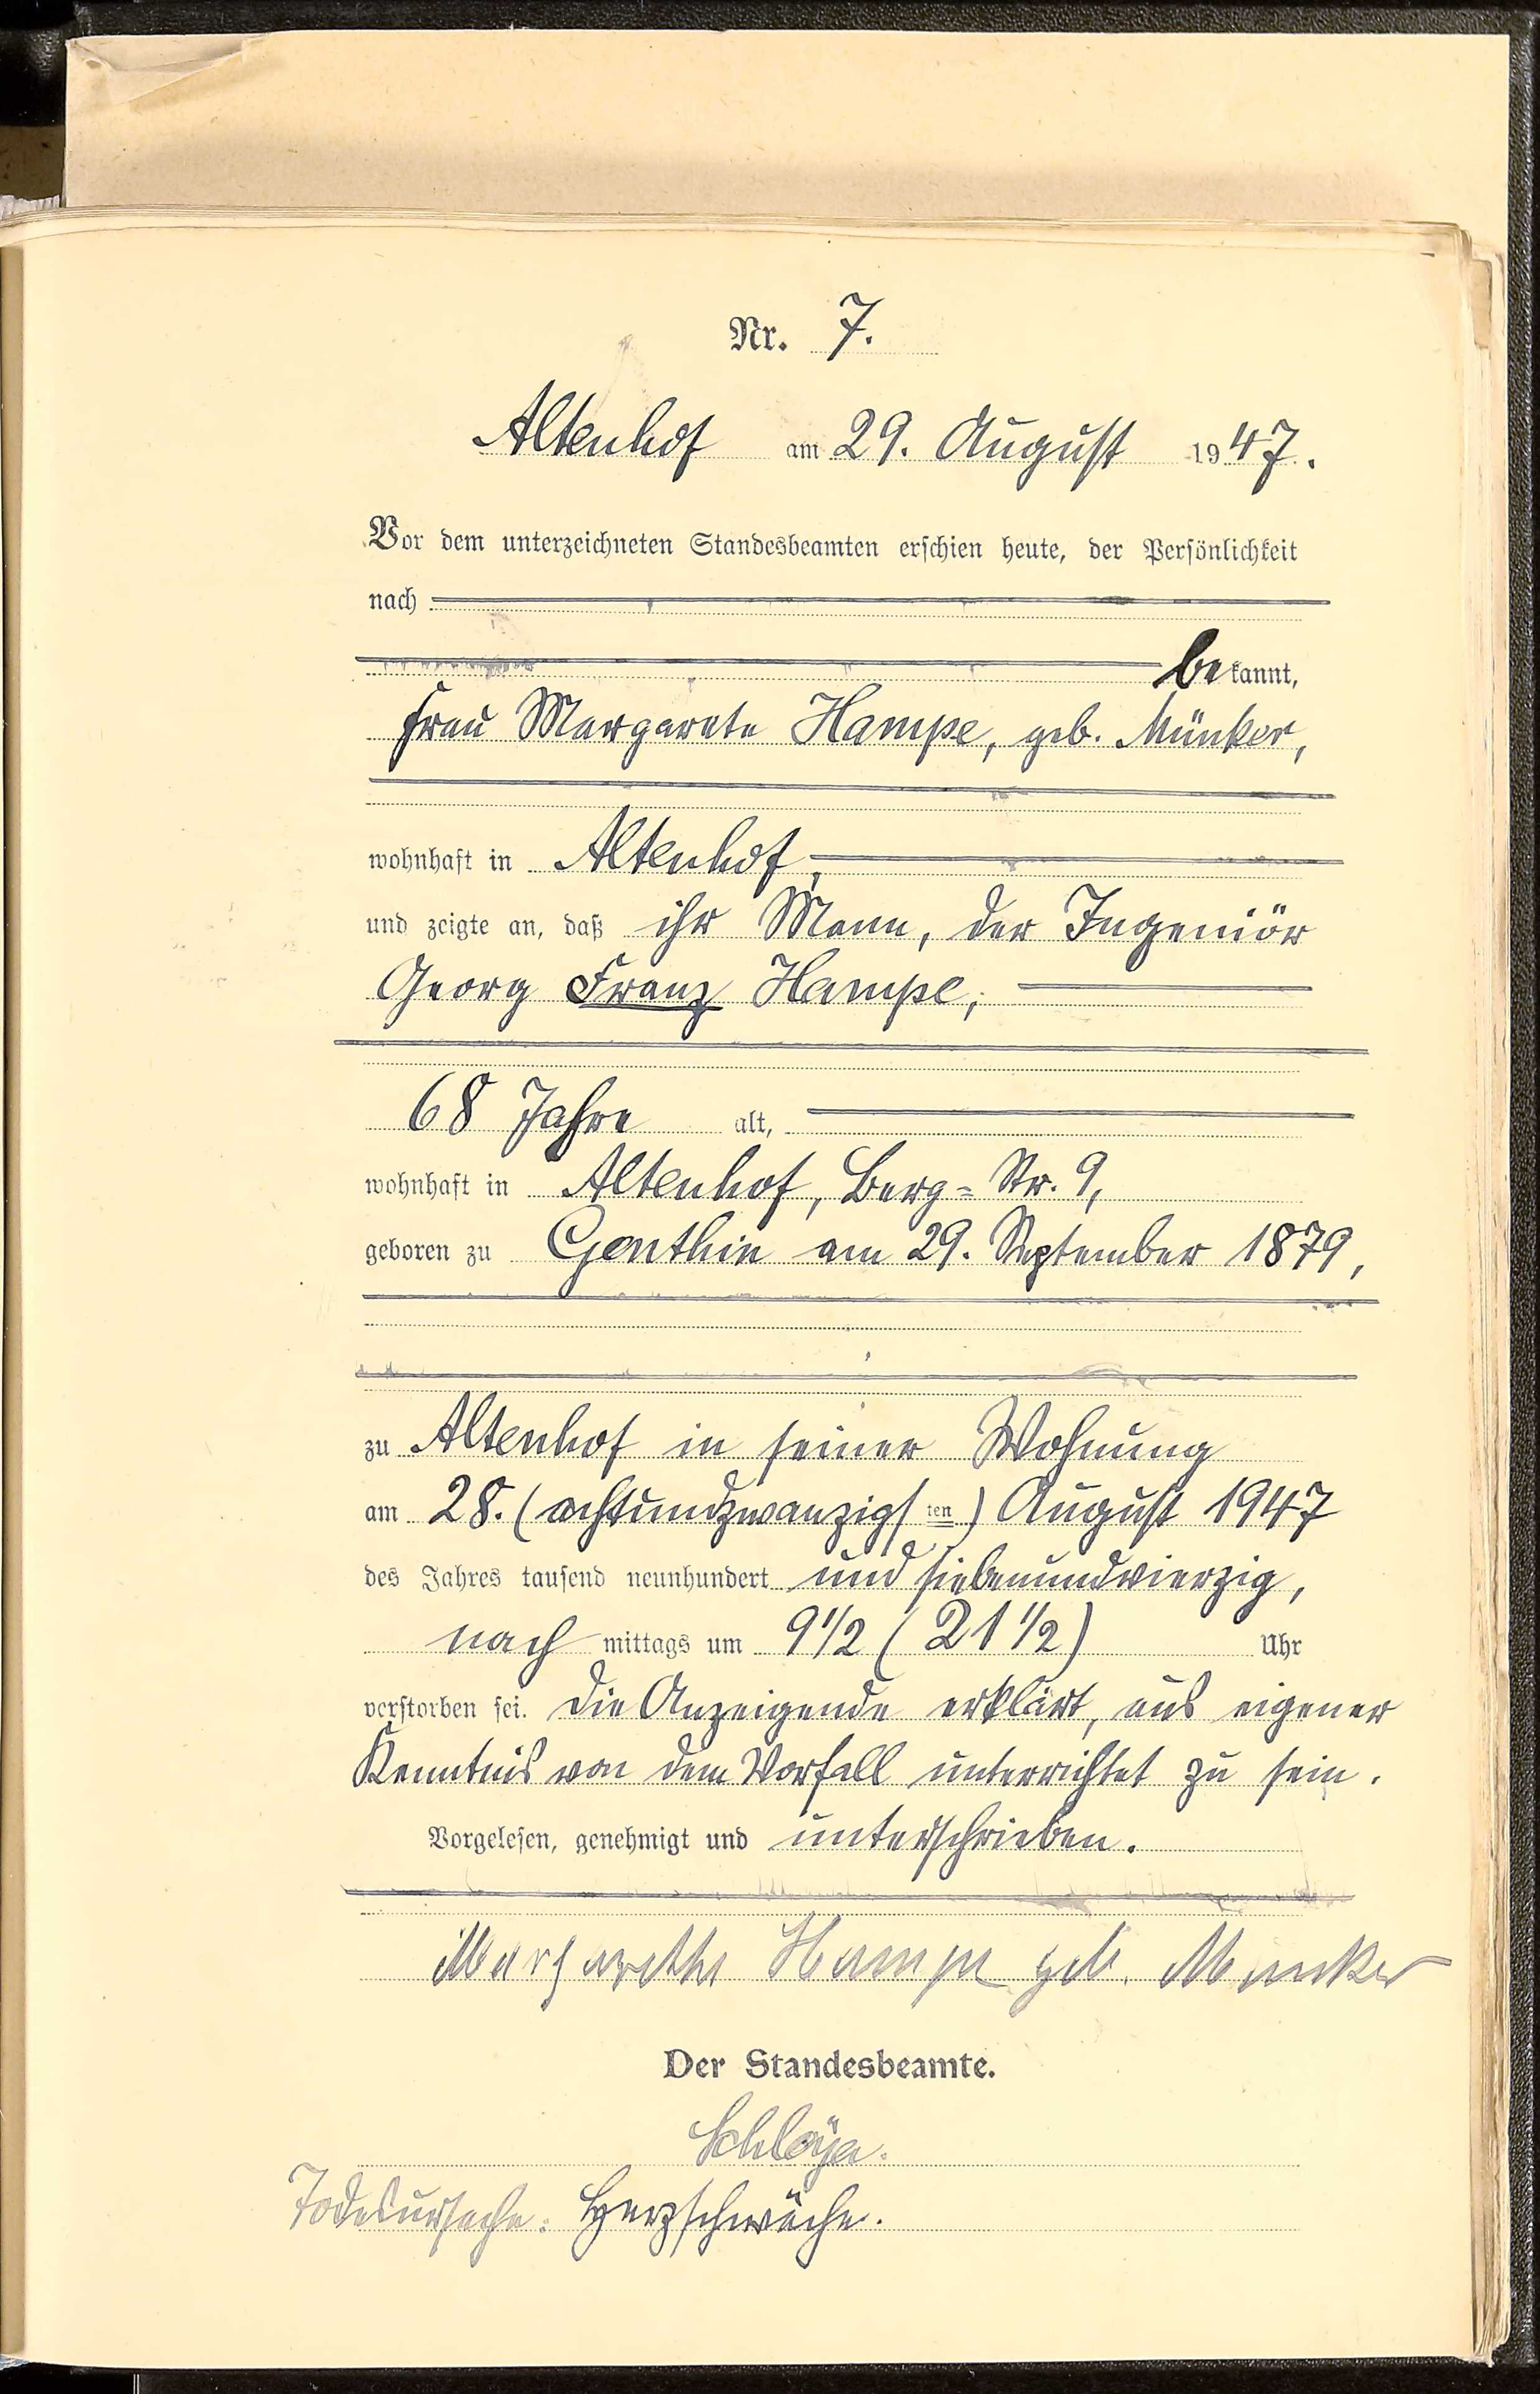 Nr. 7.
Altenhof am 29. August 1947.
Vor dem unterzeichneten Standesbeamten erschien heute, der Persönlichkeit
nach
bekannt,
Frau Margarete Hampe, geb. Münker,
wohnhaft in Altenhof,
und zeigte an, daß ihr Mann, der Ingeniör
Georg Franz Hampe,
68 Jahre alt,
wohnhaft in Altenhof, Berg-Str. 9,
geboren zu Genthin am 29. September 1879,
zu Altenhof in seiner Wohnung
am 28. (achtundzwanzigsten) August 1947
des Jahres tausend neunhundert und siebenundvierzig,
nachmittags um 9 1/2 (21 1/2) Uhr
verstorben sei. Die Anzeigende erklärt, aus eigener
Kenntnis von dem Vorfall unterrichtet zu sein.
Vorgelesen, genehmigt und unterschrieben.
Margarethe Hampe geb. Münker
Der Standesbeamte.
Todesursache: Herzschwäche.